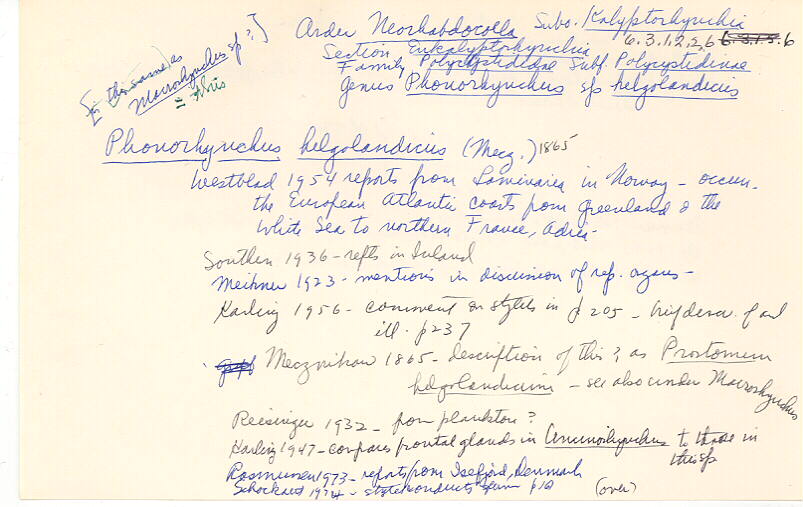 Order Neorhabdocoela Subo. Kalyptorhynchia
6.3.1.2.2.6 6.3.1.5.6
Section Eukalyptorhynchia
Family Polycystididae Subf. Polycystidinae
Genus Phonorhynchus sp helgolandicus
Is this same as
Macrorhynchus sp ?]
= this
Phonorhynchus helgolandicus (Mecz.) 1865
Westblad 1954 reports from Laminaria in Norway - occurr.
the European Atlantic coasts from Greenland & the
White Sea to northern France, Adria-
Southern 1936 - repts in Ireland
Meixner 1923 - mentions in discussion of rep. organs -
Karling 1956 - comment on stylets in p 205 - brief descr. f and
ill. p 237
Mecznikow 1865 - description of this ? as Prostomum
helgolandicum - see also under Macrorhynchus
Reisinger 1932 - from plankton ?
Karling 1947 - compares frontal glands in to those in
this sp
Rasmussen 1973 - reports from Isefjord, Denmark
Schockaert 1974 - stylet conducts sperm p 10
(over)